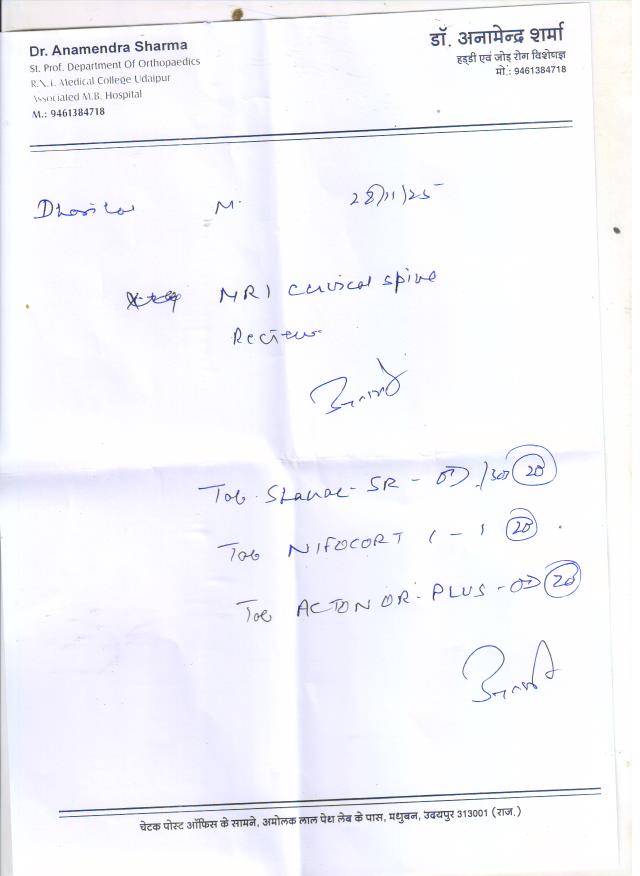 Dr. Anamendra Sharma
St. Prof. Department Of Orthopaedics
R.N.T. Medical College Udaipur
Associated M.B. Hospital
M.: 9461384718
डॉ. अनामेन्द्र शर्मा
हड्डी एवं जोड़ रोग विशेषज्ञ
मो.: 9461384718
M. 28/11/25
MRI cervical spine
Review
Tab. SR - OD 20
Tab NIFOCORT 1 - 1 20
Tab ACTON OR-PLUS - OD 20
चेटक पोस्ट ऑफिस के सामने, अमोलक लाल पेथ लेब के पास, मधुबन, उदयपुर 313001 (राज.)